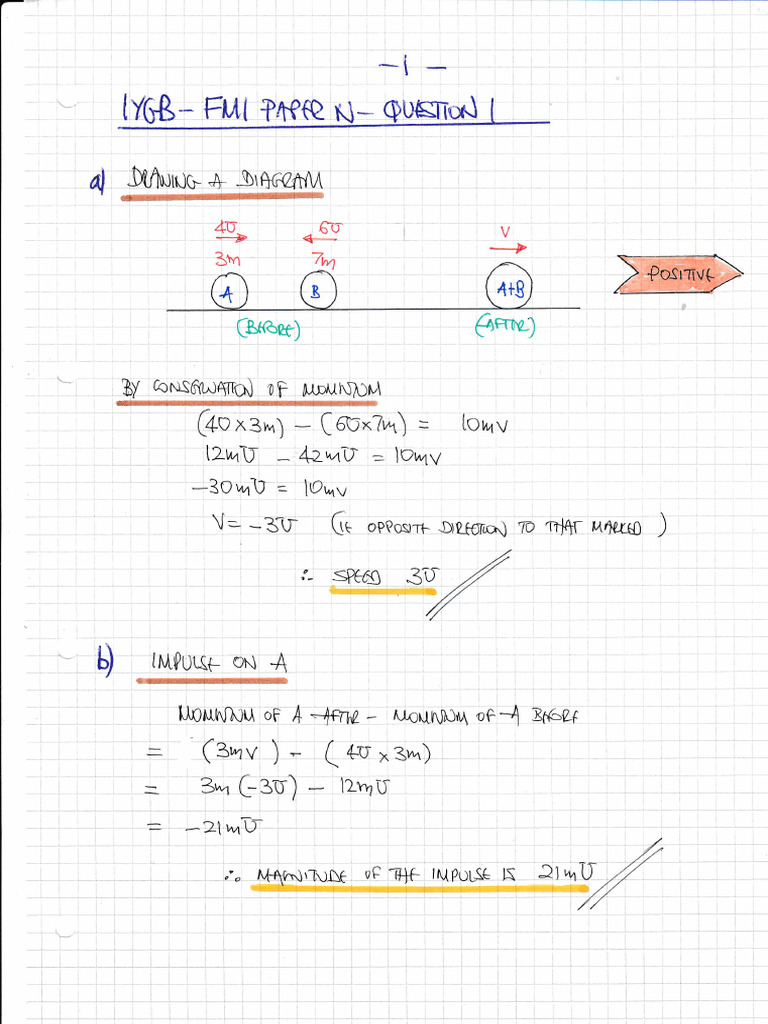 - 1 -
IYGB - FM1 PAPER N - QUESTION 1
a) DRAWING A DIAGRAM
4U 6U V
3m 7m
A B A+B
POSITIVE
(BEFORE) (AFTER)
BY CONSERVATION OF MOMENTUM
(4U×3m) - (6U×7m) = 10mV
12mU - 42mU = 10mV
-30mU = 10mV
V = -3U (IE OPPOSITE DIRECTION TO THAT MARKED)
∴ SPEED 3U
b) IMPULSE ON A
MOMENTUM OF A AFTER - MOMENTUM OF A BEFORE
= (3mV) - (4U×3m)
= 3m(-3U) - 12mU
= -21mU
∴ MAGNITUDE OF THE IMPULSE IS 21mU